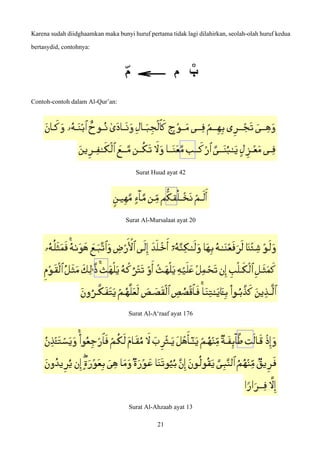 Karena sudah diidghaamkan maka bunyi huruf pertama tidak lagi dilahirkan, seolah-olah huruf kedua
bertasydid, contohnya:
بْ م ⟵ مّ
Contoh-contoh dalam Al-Qur’an:
وَهِىَ تَجْرِى بِهِمْ فِى مَوْجٍ كَٱلْجِبَالِ وَنَادَىٰ نُوحٌ ٱبْنَهُۥ وَكَانَ
فِى مَعْزِلٍ يَـٰبُنَىَّ ٱرْكَب مَّعَنَا وَلَا تَكُن مَّعَ ٱلْكَـٰفِرِينَ
Surat Huud ayat 42
أَلَمْ نَخْلُقكُّم مِّن مَّآءٍ مَّهِينٍ
Surat Al-Mursalaat ayat 20
وَلَوْ شِئْنَا لَرَفَعْنَـٰهُ بِهَا وَلَـٰكِنَّهُۥٓ أَخْلَدَ إِلَى ٱلْأَرْضِ وَٱتَّبَعَ هَوَىٰهُ ۚ فَمَثَلُهُۥ
كَمَثَلِ ٱلْكَلْبِ إِن تَحْمِلْ عَلَيْهِ يَلْهَثْ أَوْ تَتْرُكْهُ يَلْهَث ۚ ذَّٰلِكَ مَثَلُ ٱلْقَوْمِ
ٱلَّذِينَ كَذَّبُوا۟ بِـَٔايَـٰتِنَا ۚ فَٱقْصُصِ ٱلْقَصَصَ لَعَلَّهُمْ يَتَفَكَّرُونَ
Surat Al-A‘raaf ayat 176
وَإِذْ قَالَت طَّآئِفَةٌ مِّنْهُمْ يَـٰٓأَهْلَ يَثْرِبَ لَا مُقَامَ لَكُمْ فَٱرْجِعُوا۟ ۚ وَيَسْتَـْٔذِنُ
فَرِيقٌ مِّنْهُمُ ٱلنَّبِىَّ يَقُولُونَ إِنَّ بُيُوتَنَا عَوْرَةٌ وَمَا هِىَ بِعَوْرَةٍ ۖ إِن يُرِيدُونَ
إِلَّا فِرَارًا
Surat Al-Ahzaab ayat 13
21